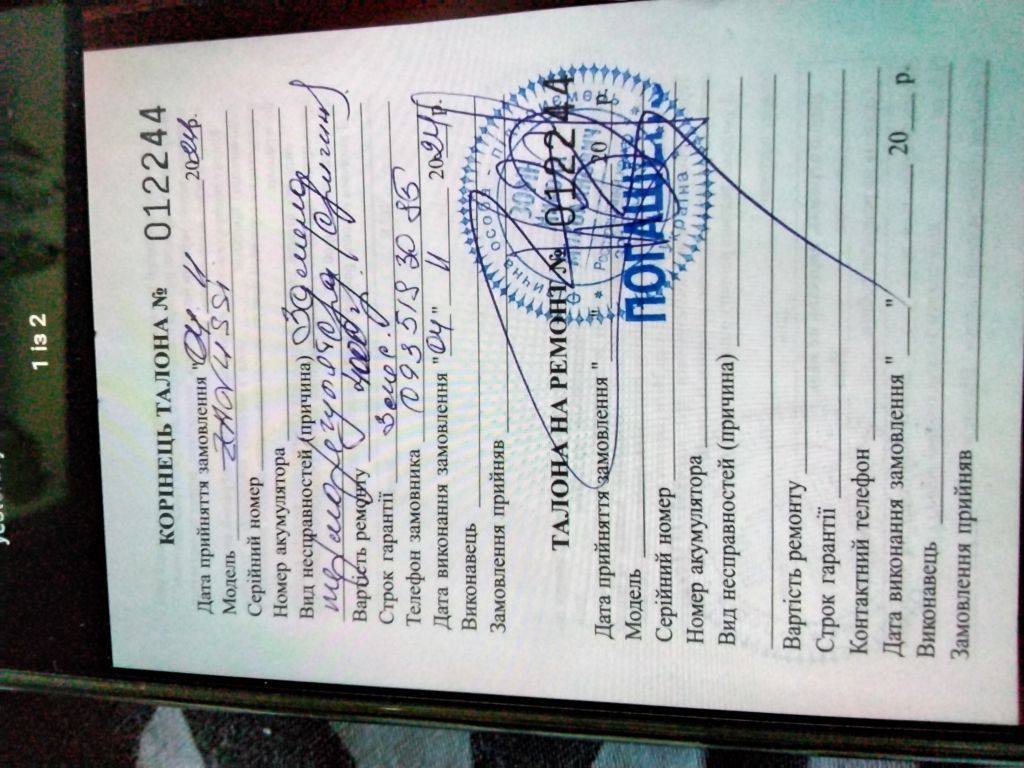 1 із 2
КОРІНЕЦЬ ТАЛОНА № 012244
Дата прийняття замовлення "04" 11 2024р.
Модель
Серійний номер
Номер акумулятора
Вид несправностей (причина) Заміна
терморегулятора
Вартість ремонту 4000 г
Строк гарантії 3 міс.
Телефон замовника 093 518 30 85
Дата виконання замовлення "04" 11 2024 р.
Виконавець
Замовлення прийняв
ТАЛОНА НА РЕМОНТ № 012244
Дата прийняття замовлення " " 20 р.
Модель
Серійний номер
Номер акумулятора
Вид несправностей (причина)
ПОГАШЕНО
Вартість ремонту
Строк гарантії
Контактний телефон
Дата виконання замовлення " " 20 р.
Виконавець
Замовлення прийняв